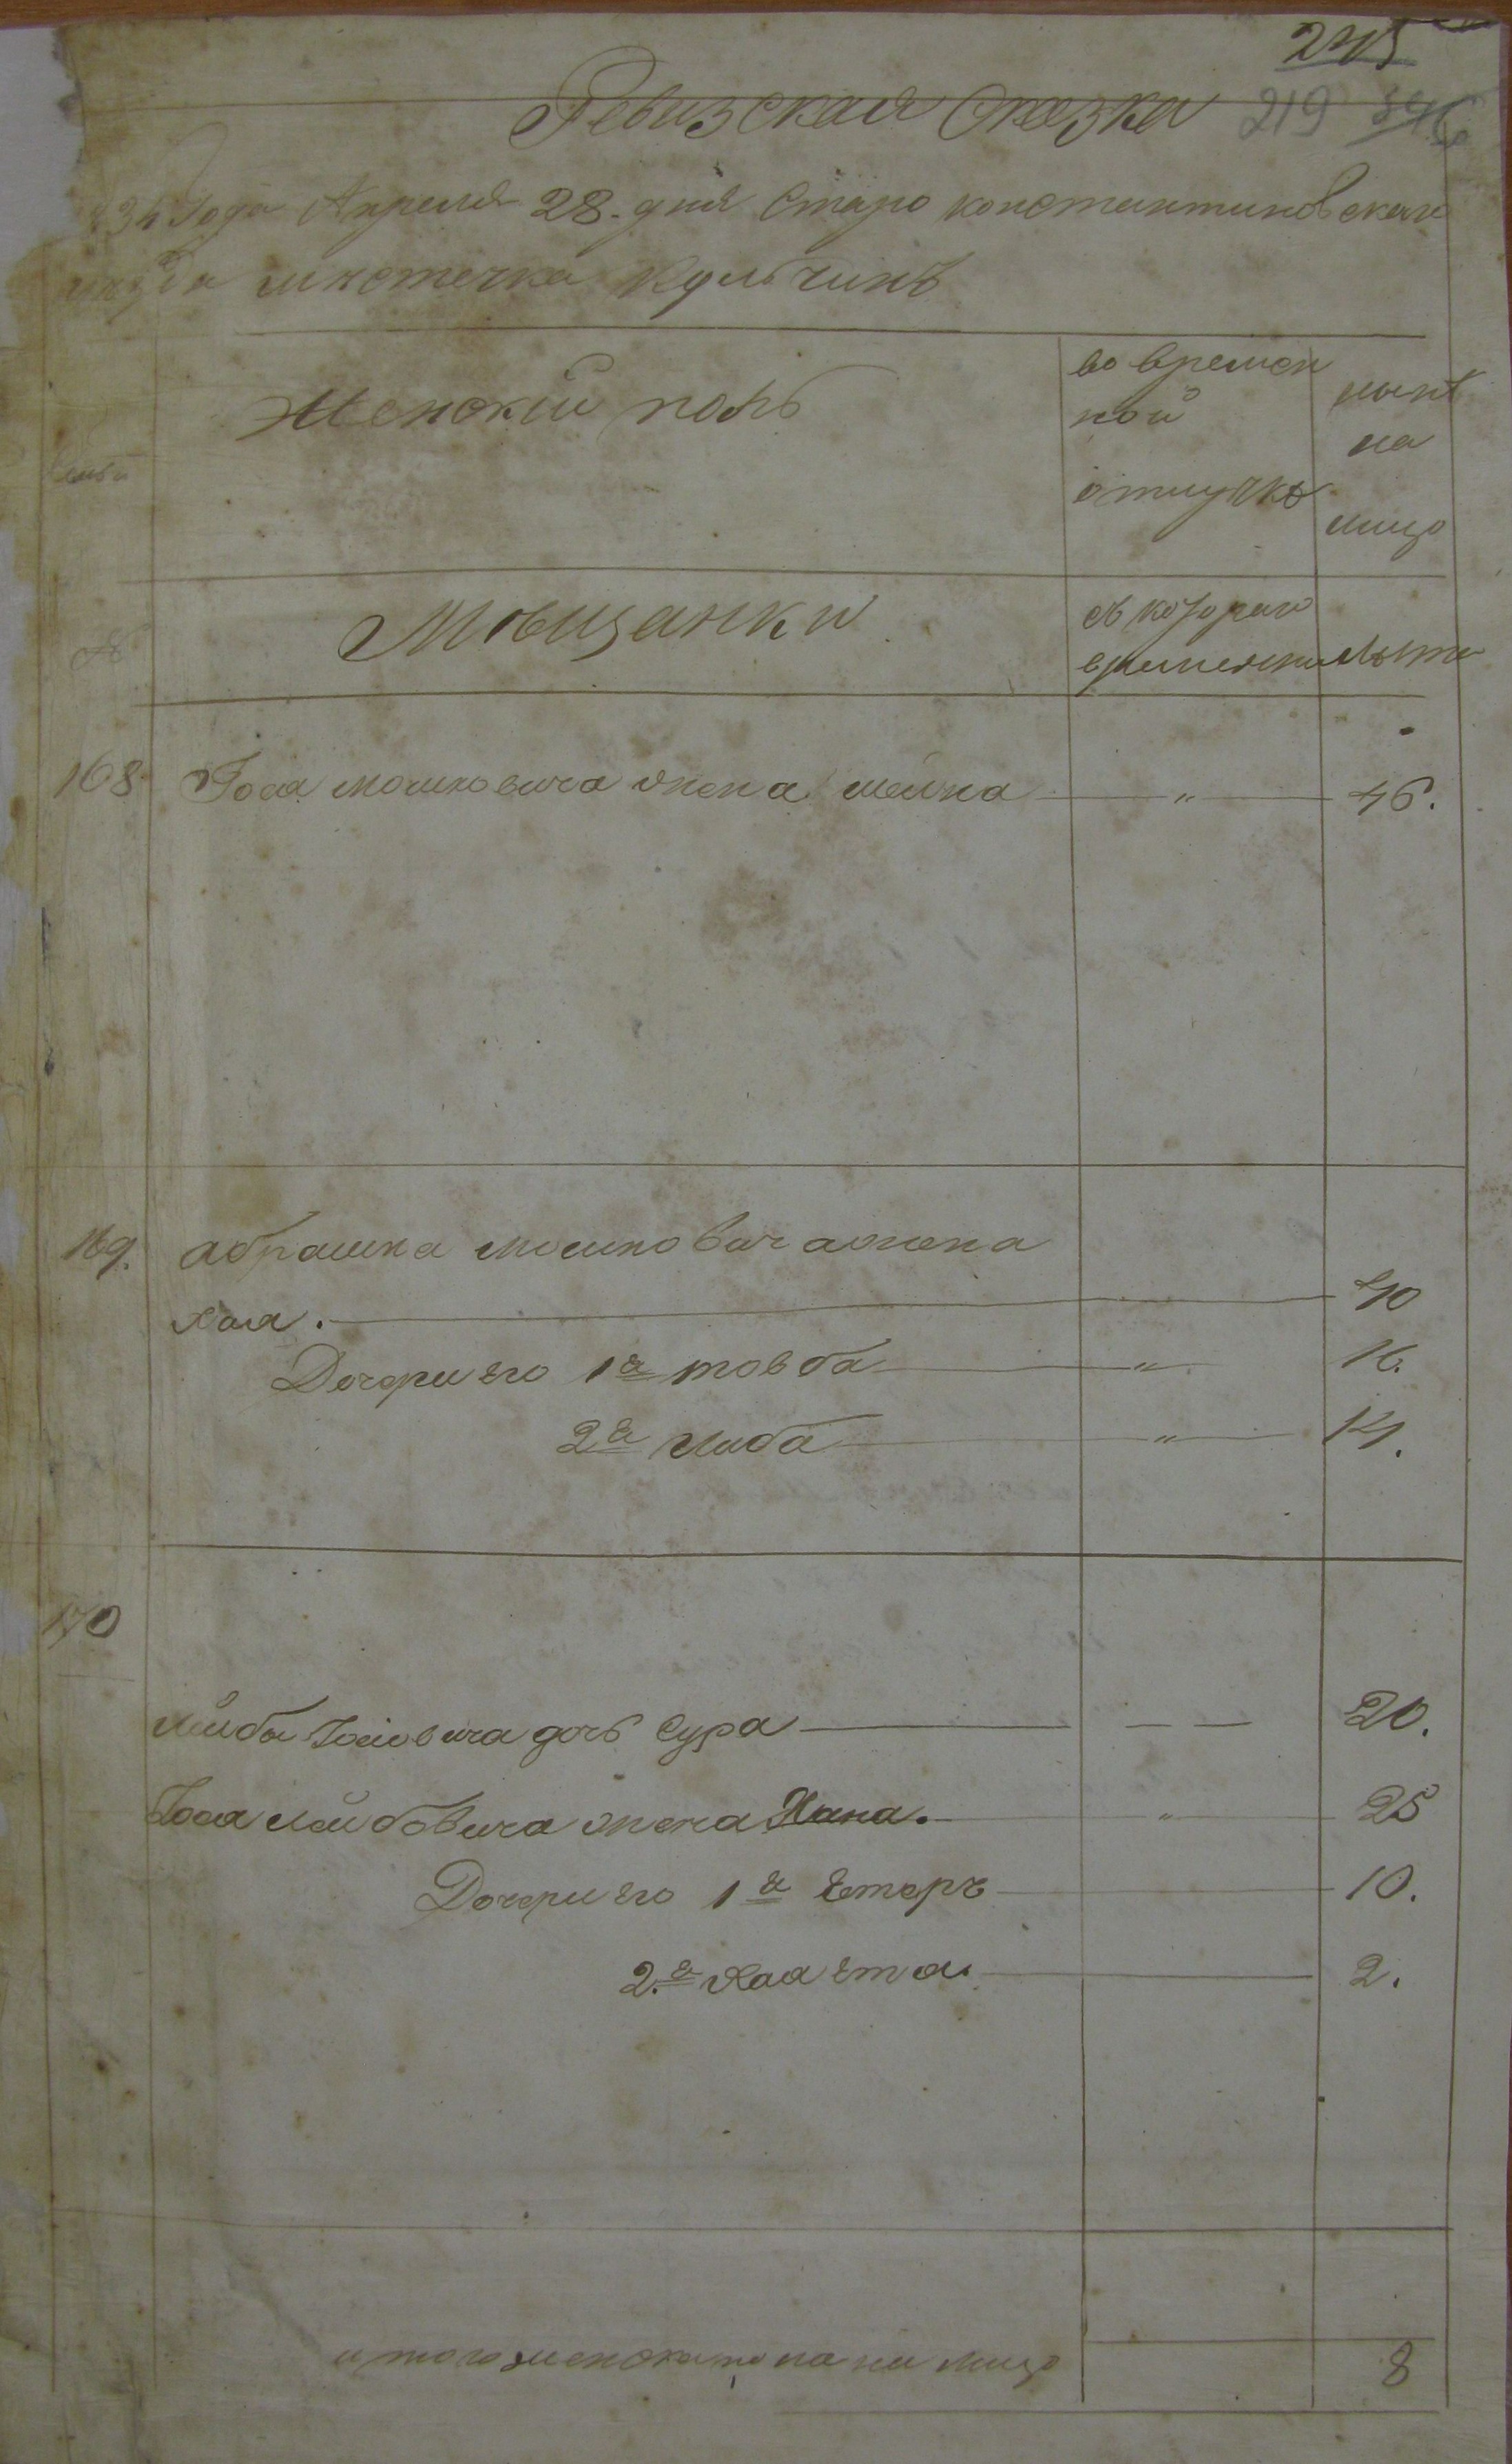 245
219
Ревизская Сказка
34 Года Апреля 28. дня Старо константиновскаго
уезда местечка Кульчинъ
Женскій полъ
во времен
ной
отлучке
ныне
на
лицо
Мещанки
съ котораго
времени
лета
168 Іося Мошковича жена шейна " 46.
169. абрашка Мошковича жена
хая. 40
Дочери его 1я товба " 16.
2я либа " 14.
170
лейба Іосіовича дочь Сура — — 20.
Іося лейбовича жена Хана. " 25
Дочери его 1я Етеръ 10.
2.я Хая ета 2.
итого женска пола на лицо 8